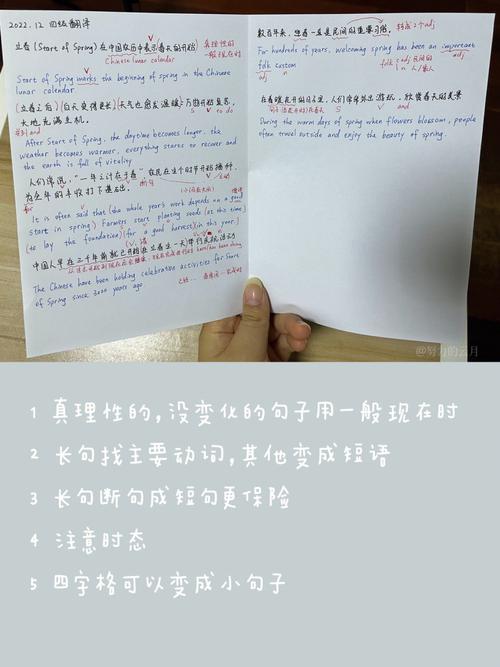 2022.12 四级翻译
立春 (Start of Spring) 在中国农历中表示春天的开始
真理性的
一般现在时
Chinese lunar calendar
Start of Spring marks the beginning of spring in the Chinese
lunar calendar.
(立春之后) 白天变得更长) 天气也愈发温暖) 万物开始复苏,
大地充满生机。
After Start of Spring, the daytime becomes longer, the
weather becomes warmer, everything starts to recover and
the earth is full of vitality
人们常说, "一年之计在于春" 农民在这个时节开始播种,
为全年的丰收打下基础。
It is often said that (the whole year's work depends on a good
start in spring) Farmers start planting seeds (at this time)
(to lay the foundation) (for a good harvest) (in this year.)
中国人早在三千年前就已开始在立春这一天举行民
The Chinese have been holding celebration activities for Start
of Spring since 3000 years ago
数百年来, 迎春一直是民间的重要习俗,
转成2个adj
For hundreds of years, welcoming spring has been an important
adj
folk custom
adj n
folk adj 民间的
n
在春暖花开的日子里, 人们常常外出游玩, 欣赏春天的美景
S V and
During the warm days of spring when flowers blossom, people
often travel outside and enjoy the beauty of spring.
@努力的云月
1 真理性的,没变化的句子用一般现在时
2 长句找主要动词,其他变成短语
3 长句断句成短句更保险
4 注意时态
5 四字格可以变成小句子